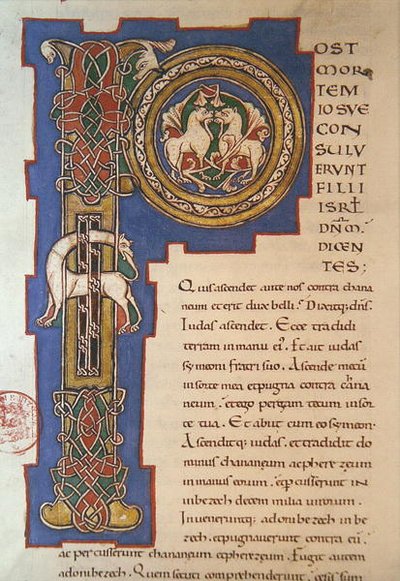 POST
MOR
TEM
IOSVE
CON
SVLV
ERVNT
FILII
ISRL̄
DN̄M.
DICEN
TES;
Quis ascendet ante nos contra chana
neum et erit dux belli. Dixitq; dn̄s.
Iudas ascendet. Ecce tradidi
terram in manu ei'. Et ait iudas
symeoni fratri suo. Ascende mecū
in sorte mea et pugna contra chana
neum. et ego pergam tecum in sor
te tua. Et abiit cum eo symeon.
Ascenditq; iudas. et tradidit do
minus chananeum ac pherezeum
in manus eorum. et p̄cusserunt in
in bezech decem milia uirorum.
Inuenerunt q; adonibezech in be
zech. et pugnauerunt contra eū
ac percusserunt chananeum et pherezeum. Fugit autem
adonibezech. Quem secuti comprehenderunt.